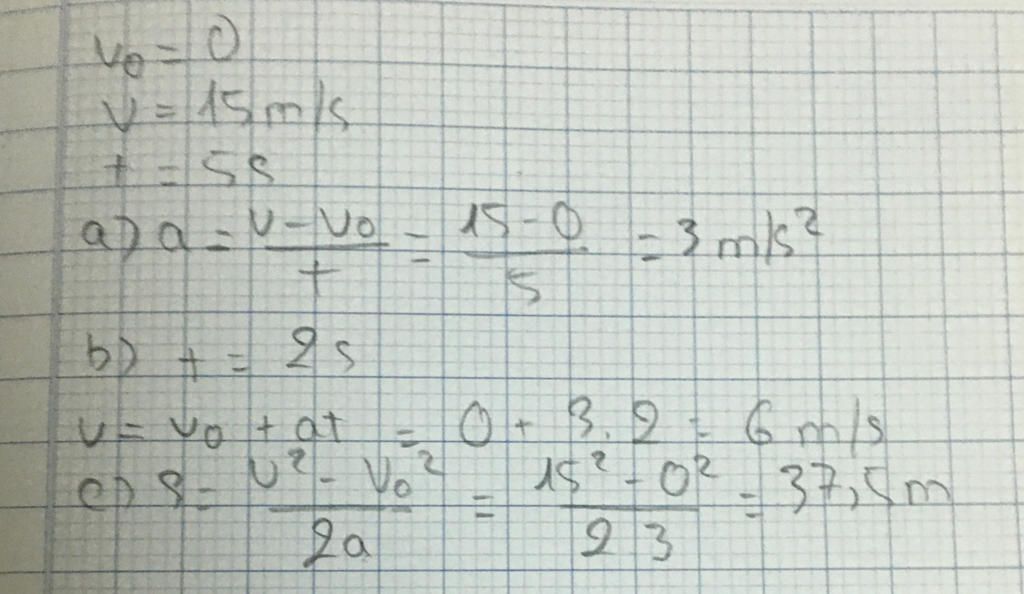 v₀ = 0
v = 15 m/s
t = 5s
a) a = (v - v₀)/t = (15 - 0)/5 = 3 m/s²
b) t = 2s
v = v₀ + at = 0 + 3.2 = 6 m/s
c) s = (v² - v₀²)/2a = (15² - 0²)/2 3 = 37,5m